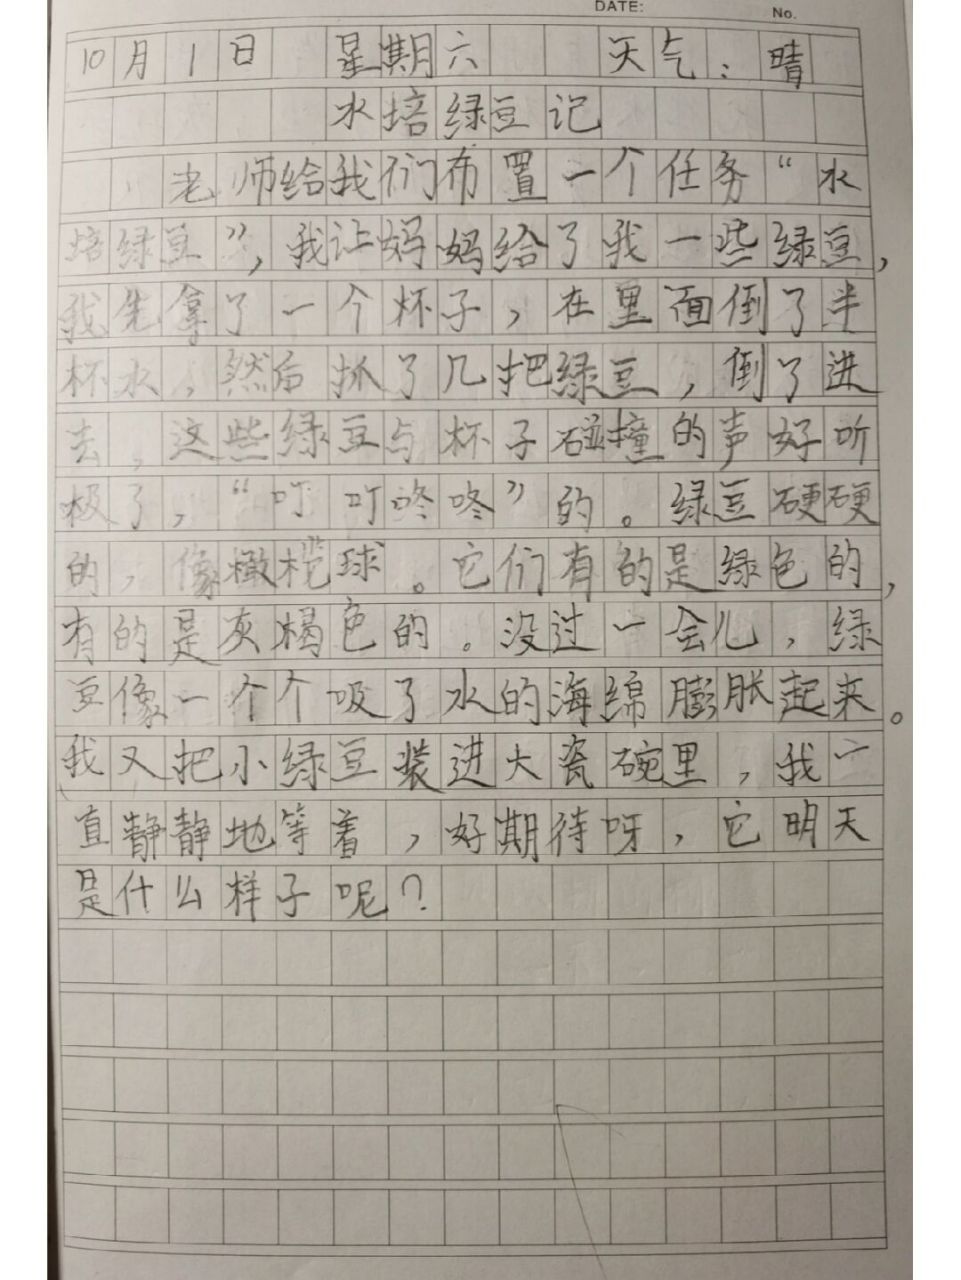 DATE: No.
10月1日 星期六 天气:晴
水培绿豆记
老师给我们布置一个任务“水
培绿豆”,我让妈妈给了我一些绿豆,
我先拿了一个杯子,在里面倒了半
杯水,然后抓了几把绿豆,倒了进
去,这些绿豆与杯子碰撞的声好听
极了,“叮叮咚咚”的。绿豆硬硬
的,像橄榄球。它们有的是绿色的,
有的是灰褐色的。没过一会儿,绿
豆像一个个吸了水的海绵膨胀起来。
我又把小绿豆装进大瓷碗里,我一
直静静地等着,好期待呀,它明天
是什么样子呢?